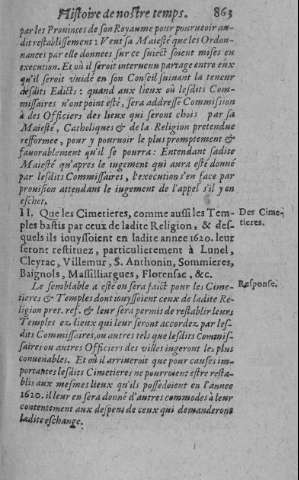 Histoire de nostre temps. 863
par les Prouinces de son Royaume pour pouruoir au-
dit restablissement: Veut sa Maiesté que les Ordon-
nances par elle données sur ce suiect soient mises en
execution. Et où il seroit interuenu partage entre eux
qu'il seroit vuidé en son Conseil suiuant la teneur
desdits Edicts: quand aux lieux où lesdits Com-
missaires n'ont point esté, sera addressé Commission
à des Officiers des lieux qui seront chois par sa
Maiesté, Catholiques & de la Religion pretendue
refformee, pour y pouruoir le plus promptement &
fauorablement qu'il se pourra: Entendant sadite
Maiesté qu'apres le iugement qui aura esté donné
par lesdits Commissaires, l'execution s'en face par
prouision attendant le iugement de l'appel s'il y en
eschet.
II. Que les Cimetieres, comme aussi les Tem-
ples bastis par ceux de ladite Religion, & des-
quels ils iouyssoient en ladite annee 1620. leur
seront restituez, particulierement à Lunel,
Cleyrac, Villemur, S. Anthonin, Sommieres,
Baignols, Massilliargues, Florensac, &c.
Des Cime-
tieres.
Le semblable a esté ou sera faict pour les Cime-
tieres & Temples dont iouyssoient ceux de ladite Re-
ligion pret. ref. & leur sera permis de restablir leurs
Temples ez lieux qui leur seront accordez par les-
dits Commissaires, ou autres tels que lesdits Commis-
saires ou autres Officiers des villes iugeront les plus
conuenables. Et où il arriueroit que pour causes im-
portances lesdits Cimetieres ne pourroient estre resta-
blis aux mesmes lieux qu'ils possedoient en l'annee
1620. il leur en sera donné d'autres commodes à leur
contentement aux despens de ceux qui demanderont
ladite eschange.
Response.